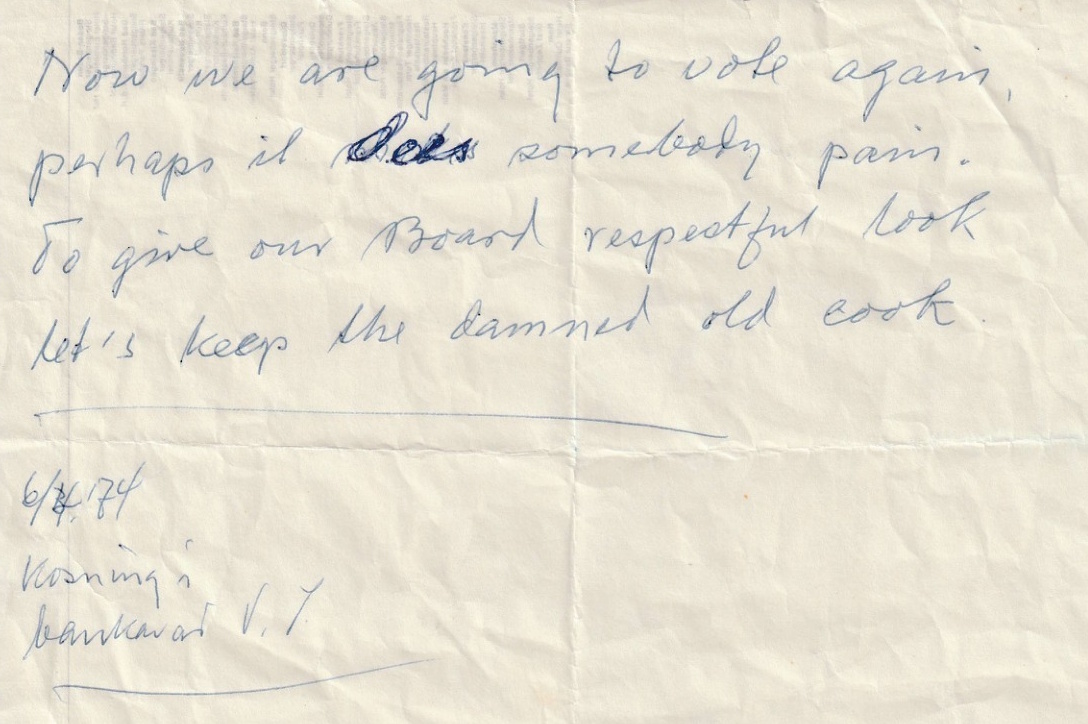 Now we are going to vote again,
perhaps it does somebody pain.
To give our Board respectful look
let's keep the damned old cook.
'74
Kosning í
bankaráð V. Í.